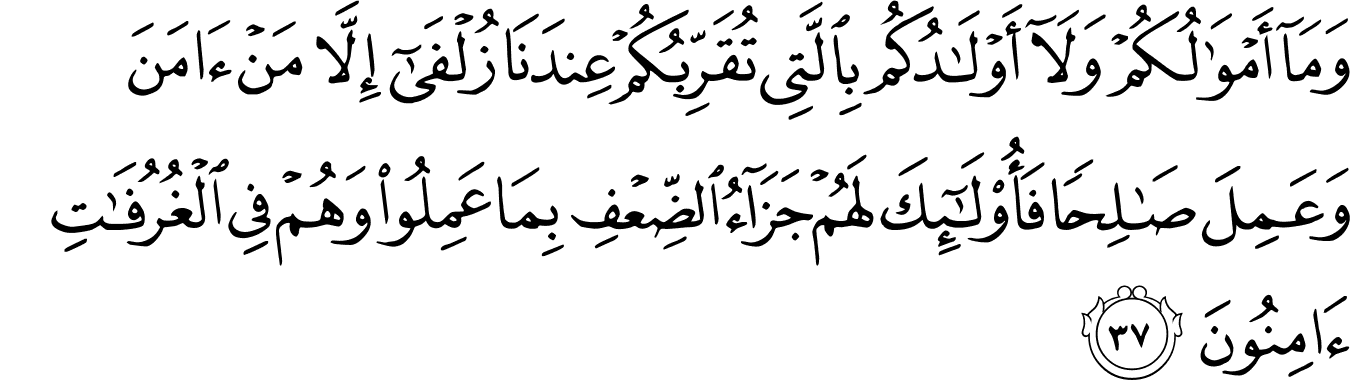 وَمَآ أَمْوَٰلُكُمْ وَلَآ أَوْلَـٰدُكُم بِٱلَّتِى تُقَرِّبُكُمْ عِندَنَا زُلْفَىٰٓ إِلَّا مَنْ ءَامَنَ
وَعَمِلَ صَـٰلِحًا فَأُو۟لَـٰٓئِكَ لَهُمْ جَزَآءُ ٱلضِّعْفِ بِمَا عَمِلُوا۟ وَهُمْ فِى ٱلْغُرُفَـٰتِ
ءَامِنُونَ ٣٧